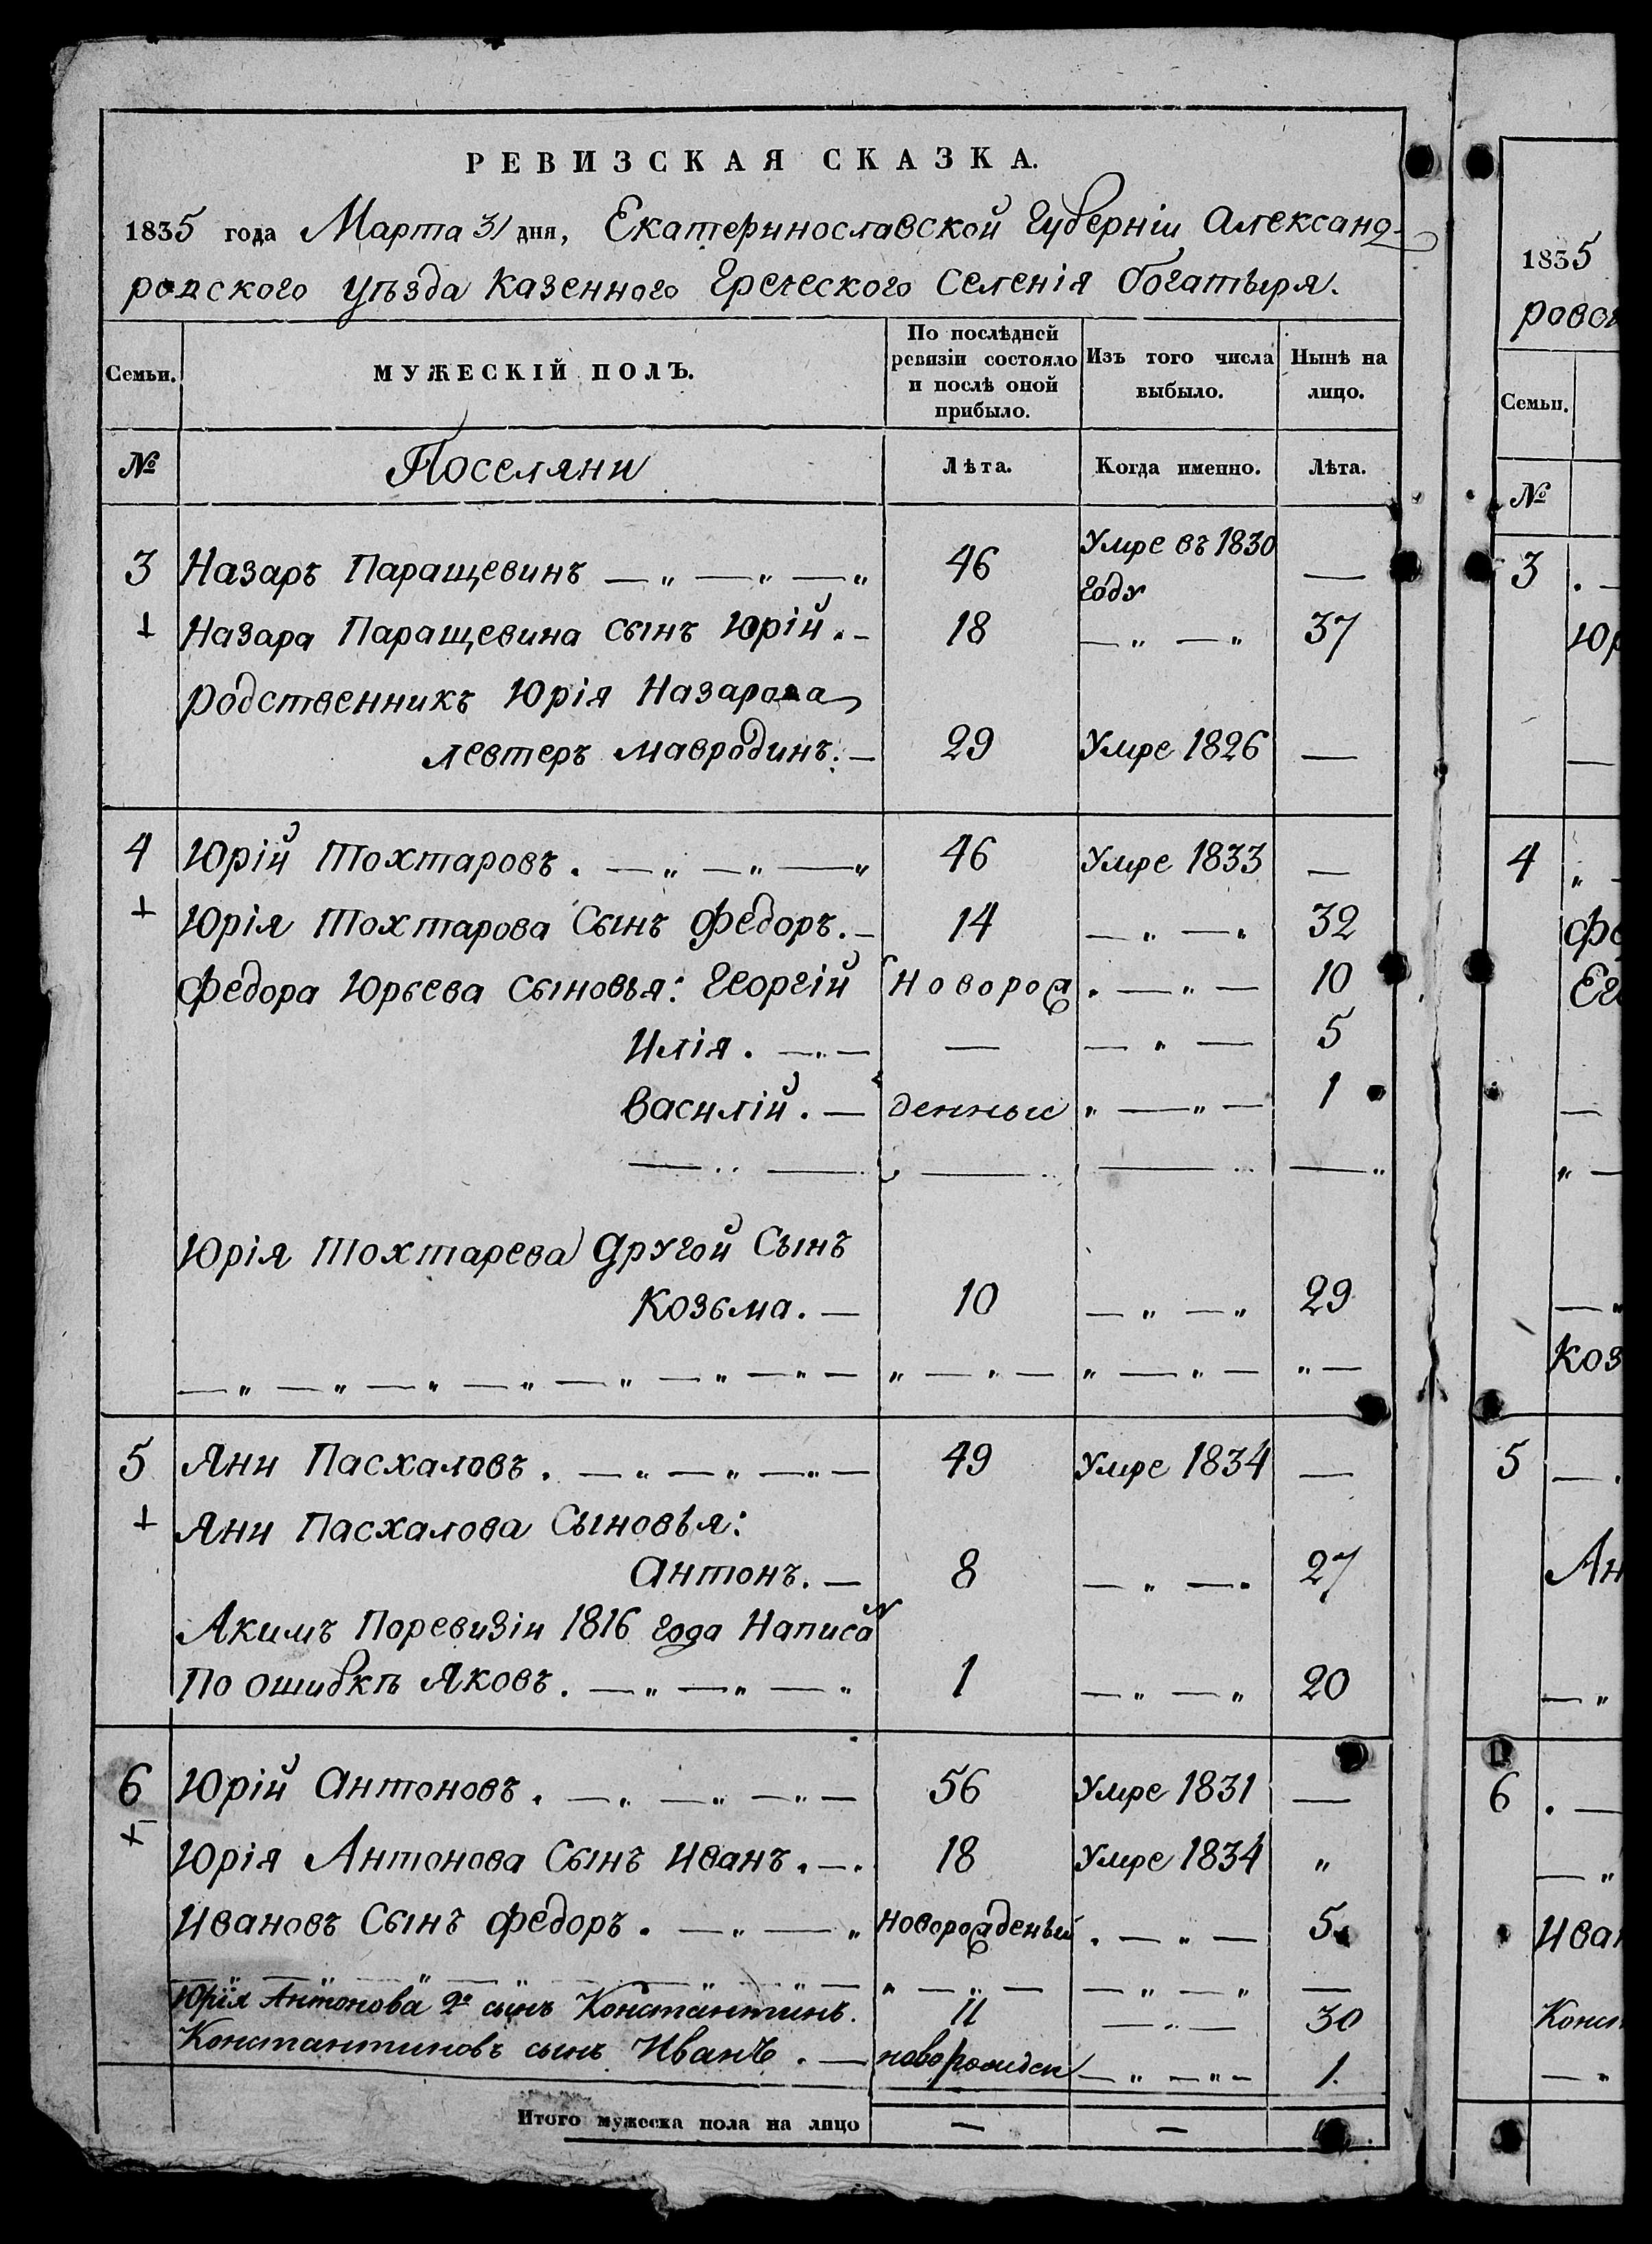 РЕВИЗСКАЯ СКАЗКА.
1835 года Марта 31 дня, Екатеринославской Губерніи Александ-
ровского уѣзда Казенного Греческого Селенія Богатыря.
Семьи. МУЖЕСКІЙ ПОЛЪ. По послѣдней ревизіи состояло и послѣ оной прибыло. Изъ того числа выбыло. Нынѣ на лицо.
№ Поселяни Лѣта. Когда именно. Лѣта.
3 Назаръ Паращевинъ — „ — „ — „ 46 Умре въ 1830 году —
Назара Паращевина сынъ Юрій . - 18 — „ — „ 37
родственникъ Юрія Назарова
левтеръ мавродинъ. — 29 Умре 1826 —
4 Юрій Тохтаровъ . — „ — „ — „ 46 Умре 1833 —
Юрія Тохтарова Сынъ Федоръ. - 14 — „ — „ 32
Федора Юрьева сыновья: Георгій Новорож . — „ — 10
Илія . — „ — — — „ — 5
Василій . — денные „ — „ — 1
Юрія Тохтарева другой Сынъ
Козьма. — 10 — „ — „ 29
5 Яни Пасхаловъ . — „ — „ — „ — 49 Умре 1834 —
Яни Пасхалова Сыновья:
Антонъ. — 8 — „ — „ 27
Акимъ Поревизіи 1816 года Написа
По ошибкѣ Яковъ . — „ — „ — „ 1 — „ — „ 20
6 Юрій Антоновъ . — „ — „ — „ — 56 Умре 1831 —
Юрія Антонова Сынъ Иванъ . — . 18 Умре 1834 „
Ивановъ Сынъ Федоръ . — „ — „ новорожденый . — „ — 5
Юрія Антонова 2й сынъ Константинъ. 11 — „ — 30
Константиновъ сынъ Иванъ . — новорожден — „ — „ — 1.
Итого мужеска пола на лицо — —
1835
ровск
Семьи.
№
3 . —
Юр
4 „ —
Фе
Ег
Коз
5 — .
Ан
6 . —
Иван
Конст